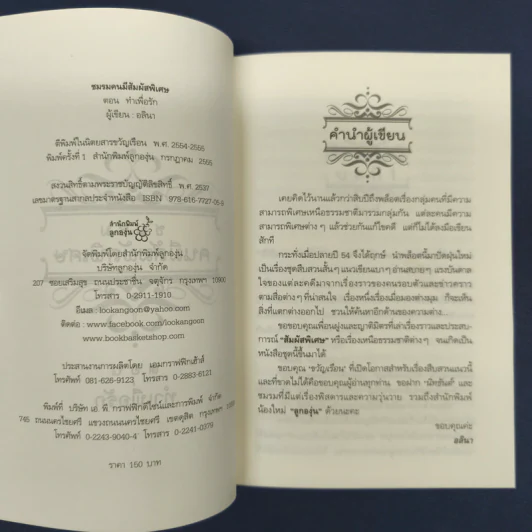 ชมรมคนมีสัมผัสพิเศษ
ตอน ทำเพื่อรัก
ผู้เขียน : อลินา
ตีพิมพ์ในนิตยสารขวัญเรือน พ.ศ. 2554-2555
พิมพ์ครั้งที่ 1 สำนักพิมพ์ลูกองุ่น กรกฎาคม 2555
สงวนลิขสิทธิ์ตามพระราชบัญญัติลิขสิทธิ์ พ.ศ. 2537
เลขมาตรฐานสากลประจำหนังสือ ISBN 978-616-7727-05-9
สำนักพิมพ์
ลูกองุ่น
จัดพิมพ์โดยสำนักพิมพ์ลูกองุ่น
บริษัทลูกองุ่น จำกัด
207 ซอยเสริมสุข ถนนประชาชื่น จตุจักร กรุงเทพฯ 10900
โทรสาร 0-2911-1910
อีเมล : lookangoon@yahoo.com
ติดต่อ : www.facebook.com/lookangoon
www.bookbasketshop.com
ประสานงานการผลิตโดย เอมกราฟฟิกเฮ้าส์
โทรศัพท์ 081-626-9123 โทรสาร 0-2883-6121
พิมพ์ที่ บริษัท เอ. พี. กราฟฟิคดีไซน์และการพิมพ์ จำกัด
745 ถนนนครไชยศรี แขวงถนนนครไชยศรี เขตดุสิต กรุงเทพฯ
โทรศัพท์ 0-2243-9040-4 โทรสาร 0-2241-0379
ราคา 160 บาท
คำนำผู้เขียน
เคยคิดไว้นานแล้วกว่าสิบปีถึงพล็อตเรื่องกลุ่มคนที่มีความ
สามารถพิเศษเหนือธรรมชาติมารวมกลุ่มกัน แต่ละคนมีความ
สามารถพิเศษต่าง ๆ แล้วช่วยกันแก้ไขคดี แต่ก็ไม่ได้ลงมือเขียน
สักที
กระทั่งเมื่อปลายปี 54 จึงได้ฤกษ์ นำพล็อตนี้มาปัดฝุ่นใหม่
เป็นเรื่องชุดสืบสวนสั้นๆ แนวเขียนเบาๆ อ่านสบายๆ แรงบันดาล
ใจของแต่ละคดีมาจากเรื่องราวของคนรอบตัวและข่าวคราว
ตามสื่อต่าง ๆ ที่น่าสนใจ เรื่องหนึ่งเรื่องเมื่อมองต่างมุม ก็จะเห็น
สิ่งที่แตกต่างออกไป ชวนให้ค้นหาอีกด้านของความต่าง...
ขอขอบคุณเพื่อนฝูงและญาติมิตรที่เล่าเรื่องราวและประสบ-
การณ์ "สัมผัสพิเศษ" หรือเรื่องเหนือธรรมชาติต่างๆ จนเกิดเป็น
หนังสือชุดนี้ขึ้นมาได้
ขอบคุณ 'ขวัญเรือน' ที่เปิดโอกาสสำหรับเรื่องสืบสวนแนวนี้
และที่ขาดไม่ได้คือขอบคุณผู้อ่านทุกท่าน ขอฝาก "นิทธันต์" และ
ชมรมที่มีแต่เรื่องพิสดารและความวุ่นวาย รวมถึงสำนักพิมพ์
น้องใหม่ "ลูกองุ่น" ด้วยนะคะ
ขอบคุณค่ะ
อลินา